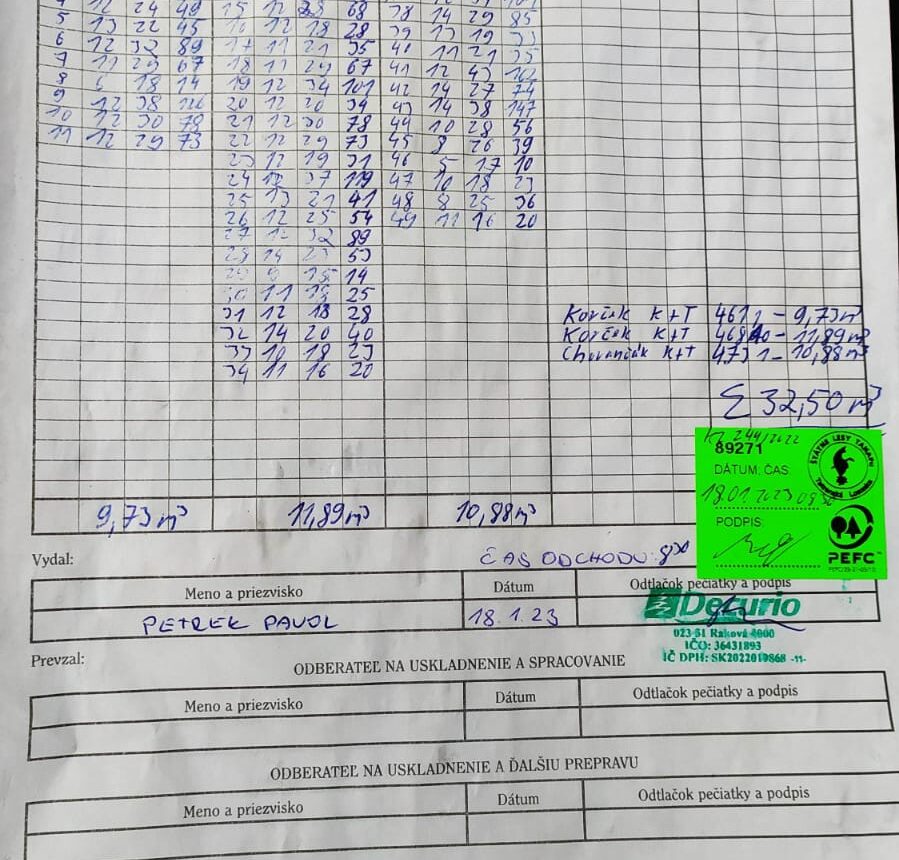 4 12 24 49 15 12 28 68
5 13 22 45 16 12 18 28 38 14 29 85
6 12 32 89 17 11 21 35 39 13 19 33
7 11 29 67 18 11 29 67 40 11 21 35
8 18 14 19 12 34 101 41 12 43
9 12 38 126 20 12 20 34 42 14 27 74
10 12 30 78 21 12 30 78 43 14 38 147
11 12 29 73 22 12 29 73 44 10 28 56
23 12 19 31 45 8 26 39
24 12 37 119 46 5 17 10
25 13 21 41 47 10 18 23
26 12 25 54 48 8 25 36
27 12 32 89 49 11 16 20
28 14 23 53
29 9 15 14
30 11 18 25
31 12 18 28 Korčák K+T 9,73m³
32 14 20 40 Korčák K+T 11,89m³
33 10 18 23 K+T 10,88m³
34 11 16 20
Σ 32,50 m³
244/2022
89271
ŠTÁTNE LESY TANAPU
TATRANSKÁ LOMNICA
DÁTUM, ČAS
18.01.2023
PODPIS:
PEFC™
9,73m³ 11,89m³ 10,88m³
Vydal: ČAS ODCHODU:
Meno a priezvisko Dátum Odtlačok pečiatky a podpis
PETREK PAVOL 18.1.23
Decurio
023 51 Raková
IČO: 36431893
IČ DPH: SK2022019868 -11-
Prevzal: ODBERATEĽ NA USKLADNENIE A SPRACOVANIE
Meno a priezvisko Dátum Odtlačok pečiatky a podpis
ODBERATEĽ NA USKLADNENIE A ĎALŠIU PREPRAVU
Meno a priezvisko Dátum Odtlačok pečiatky a podpis